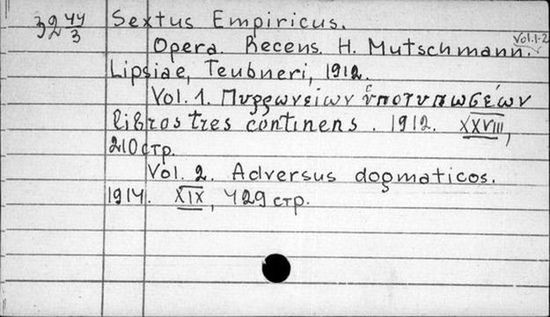 39 44/3 Sextus Empiricus.
Vol. 1-2
Opera. Recens. H. Mutschmann.
Lipsiae, Teubneri, 1912.
Vol. 1. Πυρρωνείων ὑποτυπωσέων
libros tres continens. 1912. XXVIII,
210 стр.
Vol. 2. Adversus dogmaticos.
1914. XIX, 429 стр.